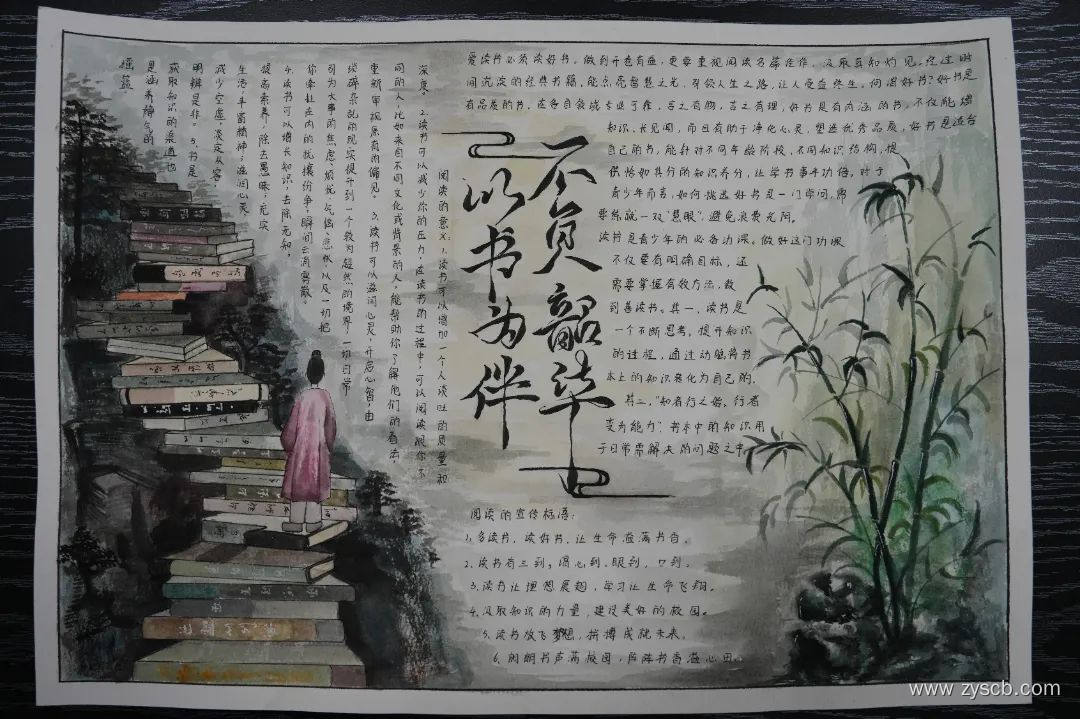 不负韶华
以书为伴
爱读书必须读好书。做到开卷有益,更要重视阅读名篇佳作,汲取真知灼见。经过时
间沉淀的经典书籍,能点亮智慧之光,引领人生之路,让人受益终生。何谓好书?好书是
有品质的书,在各自领域专业于精,言之有物,言之有理。好书是有内涵的书,不仅能增
知识、长见闻,而且有助于净化心灵,塑造优秀品质。好书是适合
自己的书,能针对不同年龄阶段、不同知识结构,提
供恰如其分的知识养分,让学书事半功倍。对于
青少年而言,如何挑选好书是一门学问,需
要练就一双"慧眼",避免浪费光阴。
读书是青少年的必备功课。做好这门功课
不仅要有明确目标,还
需要掌握有效方法,做
到善读书。其一,读书是
一个不断思考,提升认识
的过程,通过动脑将书
本上的知识转化为自己的,
其二,"知者行之始,行者
变为能力",书本中的知识用
于日常需解决的问题之中
阅读的意义:1、读书可以增加一个人谈吐的质量和
深度。2.读书可以减少你的压力,在读书的过程中,可以阅读跟你不
同的人,比如来自不同文化或背景的人。能帮助你了解他们的看法,
重新审视原有的偏见。3.读书可以滋润心灵,开启心智,由
琐碎杂乱的现实提升到一个较为超然的境界,一切日常
引为大事的焦虑、烦忧、气恼、悲愁以及一切把
你牵扯在内的扰攘纷争瞬间云消雾散。
4.读书可以增长知识,去除无知。
提高素养,除去愚昧,充实
生活,丰富精神,滋润心灵
减少空虚、淡定从容,
明辨是非。5.书是
获取知识的渠道也
是涵养静气的
摇篮
阅读的宣传标语:
1.多读书,读好书,让生命溢满书香。
2.读书有三到:谓心到、眼到、口到。
3.读书让理想展翅,学习让生命飞翔。
4.汲取知识的力量,建设美好的校园。
5.读书放飞梦想,拼搏成就未来。
6.朗朗书声满校园,阵阵书香溢心田。
www.zyscb.com